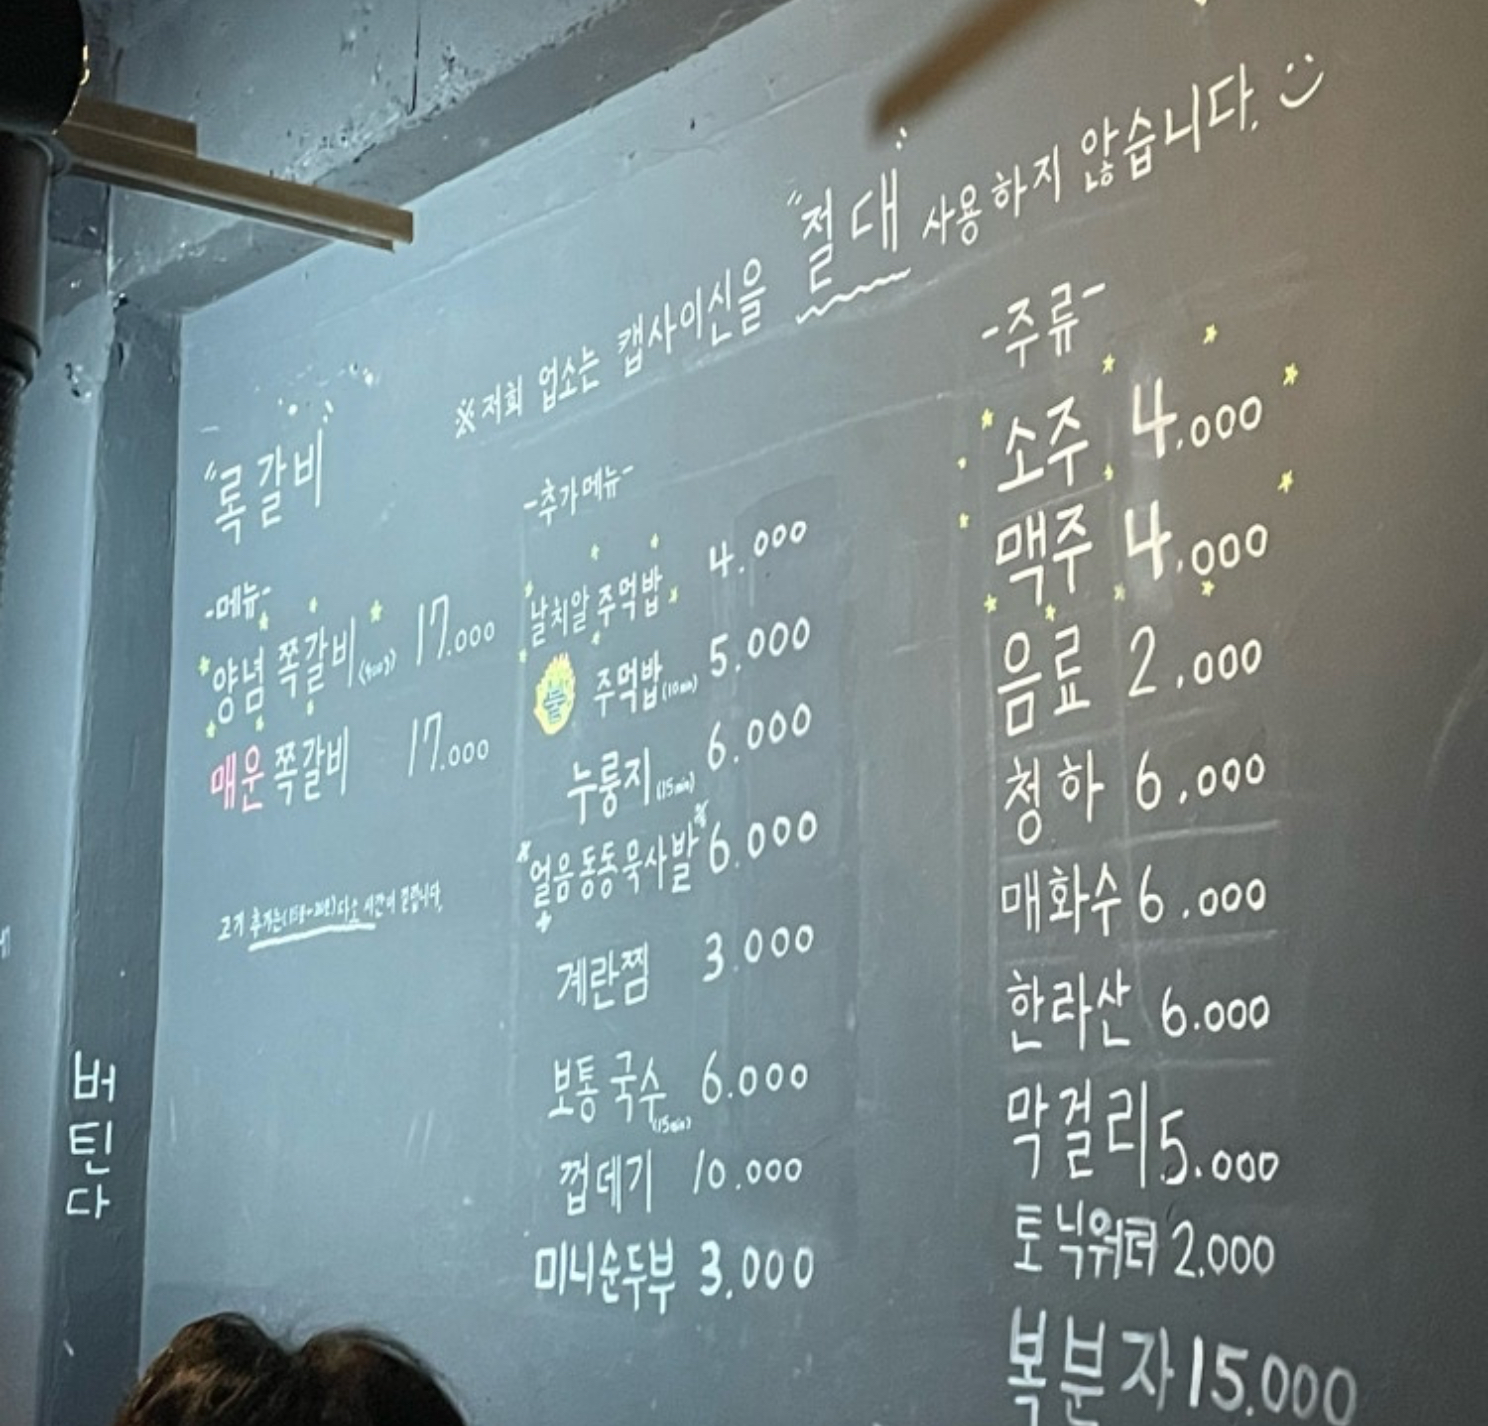 ※저희 업소는 캡사이신을 "절대" 사용하지 않습니다.
"록갈비"
-메뉴-
양념 쪽갈비 17.000
매운 쪽갈비 17.000
고기 추가는 다소 시간이 걸립니다.
-추가메뉴-
날치알 주먹밥 4.000
불 주먹밥(10min) 5.000
누룽지(15min) 6.000
얼음동동묵사발 6.000
계란찜 3.000
보통국수(15min) 6.000
껍데기 10.000
미니순두부 3.000
-주류-
소주 4.000
맥주 4.000
음료 2.000
청하 6.000
매화수 6.000
한라산 6.000
막걸리 5.000
토닉워터 2.000
복분자 15.000
버
틴
다